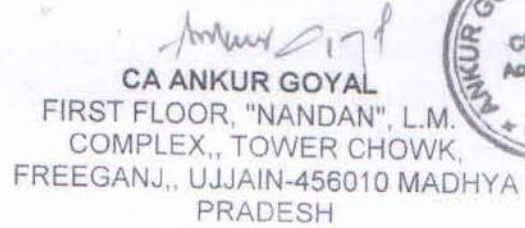 Ankur Goyal
CA ANKUR GOYAL
FIRST FLOOR, "NANDAN", L.M.
COMPLEX,, TOWER CHOWK,
FREEGANJ,, UJJAIN-456010 MADHYA
PRADESH
ANKUR G